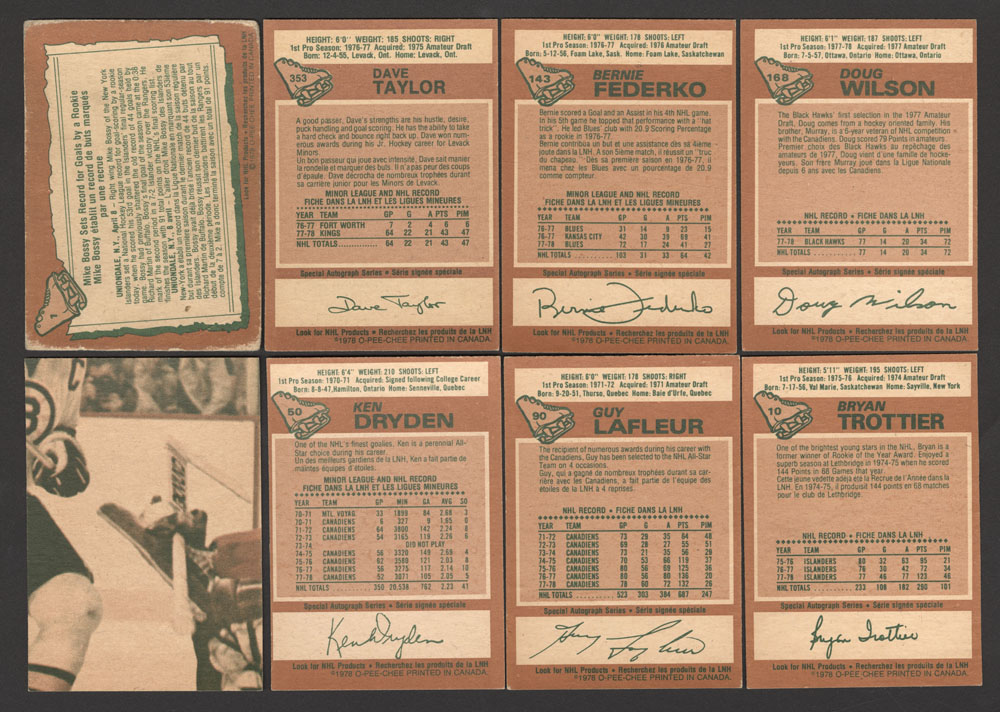 Mike Bossy Sets Record for Goals by a Rookie
Mike Bossy établit un record de buts marqués
par une recrue
UNIONDALE, N.Y., April 8 - Right wing Mike Bossy of the New York
HEIGHT: 6'0" WEIGHT: 185 SHOOTS: RIGHT
1st Pro Season: 1976-77 Acquired: 1975 Amateur Draft
Born: 12-4-55, Levack, Ont. Home: Levack, Ont.
353
DAVE
TAYLOR
A good passer, Dave's strengths are his hustle, desire,
puck handling and goal scoring. He has the ability to take
a hard check and bounce right back up. Dave won num-
erous awards during his Jr. Hockey career for Levack
Minors.
Un bon passeur qui joue avec intensité, Dave sait manier
la rondelle et marquer des buts. Il n'a pas peur des coups
d'épaule. Dave décrocha de nombreux trophées durant
sa carrière junior pour les Minors de Levack.
MINOR LEAGUE AND NHL RECORD
FICHE DANS LA LNH ET LES LIGUES MINEURES
YEAR TEAM GP G A PTS PIM
76-77 FORT WORTH 7 2 4 6 6
77-78 KINGS 64 22 21 43 47
NHL TOTALS 64 22 21 43 47
Special Autograph Series • Série signée spéciale
Dave Taylor
Look for NHL Products • Recherchez les produits de la LNH
©1978 O-PEE-CHEE PRINTED IN CANADA.
HEIGHT: 6'0" WEIGHT: 178 SHOOTS: LEFT
1st Pro Season: 1976-77 Acquired: 1976 Amateur Draft
Born: 5-12-56, Foam Lake, Sask. Home: Foam Lake, Saskatchewan
143
BERNIE
FEDERKO
Bernie scored a Goal and an Assist in his 4th NHL game.
In his 5th game he topped that performance with a 'hat
trick'. He led Blues' club with 20.9 Scoring Percentage
as a rookie in 1976-77.
Bernie contribua un but et une assistance des sa 4ième
joute dans la LNH. A son 5ième match, il réussit un "truc
du chapeau." Dès sa première saison en 1976-77, il
mena chez les Blues avec un pourcentage de 20.9
comme compteur.
MINOR LEAGUE AND NHL RECORD
FICHE DANS LA LNH ET LES LIGUES MINEURES
YEAR TEAM GP G A PTS PIM
76-77 BLUES 31 14 9 23 15
76-77 KANSAS CITY 42 30 39 69 41
77-78 BLUES 72 17 24 41 27
NHL TOTALS 103 31 33 64 42
Special Autograph Series • Série signée spéciale
Bernie Federko
Look for NHL Products • Recherchez les produits de la LNH
©1978 O-PEE-CHEE PRINTED IN CANADA.
HEIGHT: 6'1" WEIGHT: 187 SHOOTS: LEFT
1st Pro Season: 1977-78 Acquired: 1977 Amateur Draft
Born: 7-5-57, Ottawa, Ontario Home: Ottawa, Ontario
168
DOUG
WILSON
The Black Hawks' first selection in the 1977 Amateur
Draft, Doug comes from a hockey oriented family. His
brother, Murray, is a 6-year veteran of NHL competition
with the Canadiens. Doug scored 79 Points in amateurs.
Premier choix des Black Hawks au repêchage des
amateurs de 1977, Doug vient d'une famille de hockey-
eurs. Son frère Murray joue dans la Ligue Nationale
depuis 6 ans avec les Canadiens.
NHL RECORD • FICHE DANS LA LNH
YEAR TEAM GP G A PTS PIM
77-78 BLACK HAWKS 77 14 20 34 72
NHL TOTALS 77 14 20 34 72
Special Autograph Series • Série signée spéciale
Doug Wilson
Look for NHL Products • Recherchez les produits de la LNH
©1978 O-PEE-CHEE PRINTED IN CANADA.
C
HEIGHT: 6'4" WEIGHT: 210 SHOOTS: LEFT
1st Pro Season: 1970-71 Acquired: Signed following College Career
Born: 8-8-47, Hamilton, Ontario Home: Senneville, Quebec
50
KEN
DRYDEN
One of the NHL's finest goalies, Ken is a perennial All-
Star choice during his career.
Un des meilleurs gardiens de la LNH, Ken a fait partie de
maintes équipes d'étoiles.
MINOR LEAGUE AND NHL RECORD
FICHE DANS LA LNH ET LES LIGUES MINEURES
YEAR TEAM GP MIN GA AVG SO
70-71 MTL. VOYAG 33 1899 84 2.68 3
70-71 CANADIENS 6 327 9 1.65 0
71-72 CANADIENS 64 3800 142 2.24 8
72-73 CANADIENS 54 3165 119 2.26 6
73-74 DID NOT PLAY
74-75 CANADIENS 56 3320 149 2.69 4
75-76 CANADIENS 62 3580 121 2.03 8
76-77 CANADIENS 56 3275 117 2.14 10
77-78 CANADIENS 52 3071 105 2.05 5
NHL TOTALS 350 20,538 762 2.23 41
Special Autograph Series • Série signée spéciale
Ken Dryden
Look for NHL Products • Recherchez les produits de la LNH
©1978 O-PEE-CHEE PRINTED IN CANADA.
HEIGHT: 6'0" WEIGHT: 178 SHOOTS: RIGHT
1st Pro Season: 1971-72 Acquired: 1971 Amateur Draft
Born: 9-20-51, Thurso, Quebec Home: Baie d'Urfe, Quebec
90
GUY
LAFLEUR
The recipient of numerous awards during his career with
the Canadiens, Guy has been selected to the NHL All-Star
Team on 4 occasions.
Guy, qui a gagné de nombreux trophées durant sa car-
rière avec les Canadiens, a fait partie de l'équipe des
étoiles de la LNH à 4 reprises.
NHL RECORD • FICHE DANS LA LNH
YEAR TEAM GP G A PTS PIM
71-72 CANADIENS 73 29 35 64 48
72-73 CANADIENS 69 28 27 55 51
73-74 CANADIENS 73 21 35 56 29
74-75 CANADIENS 70 53 66 119 37
75-76 CANADIENS 80 56 69 125 36
76-77 CANADIENS 80 56 80 136 20
77-78 CANADIENS 78 60 72 132 26
NHL TOTALS 523 303 384 687 247
Special Autograph Series • Série signée spéciale
Guy Lafleur
Look for NHL Products • Recherchez les produits de la LNH
©1978 O-PEE-CHEE PRINTED IN CANADA.
HEIGHT: 5'11" WEIGHT: 195 SHOOTS: LEFT
1st Pro Season: 1975-76 Acquired: 1974 Amateur Draft
Born: 7-17-56, Val Marie, Saskatchewan Home: Sayville, New York
10
BRYAN
TROTTIER
One of the brightest young stars in the NHL, Bryan is a
former winner of Rookie of the Year Award. Enjoyed a
superb season at Lethbridge in 1974-75 when he scored
144 Points in 68 Games that year.
Cette jeune vedette adéja eta la Recrue de l'Année dans la
LNH. En 1974-75, il produisit 144 points en 68 matches
pour le club de Lethbridge.
NHL RECORD • FICHE DANS LA LNH
YEAR TEAM GP G A PTS PIM
75-76 ISLANDERS 80 32 63 95 21
76-77 ISLANDERS 76 30 42 72 34
77-78 ISLANDERS 77 46 77 123 46
NHL TOTALS 233 108 182 290 101
Special Autograph Series • Série signée spéciale
Bryan Trottier
Look for NHL Products • Recherchez les produits de la LNH
©1978 O-PEE-CHEE PRINTED IN CANADA.